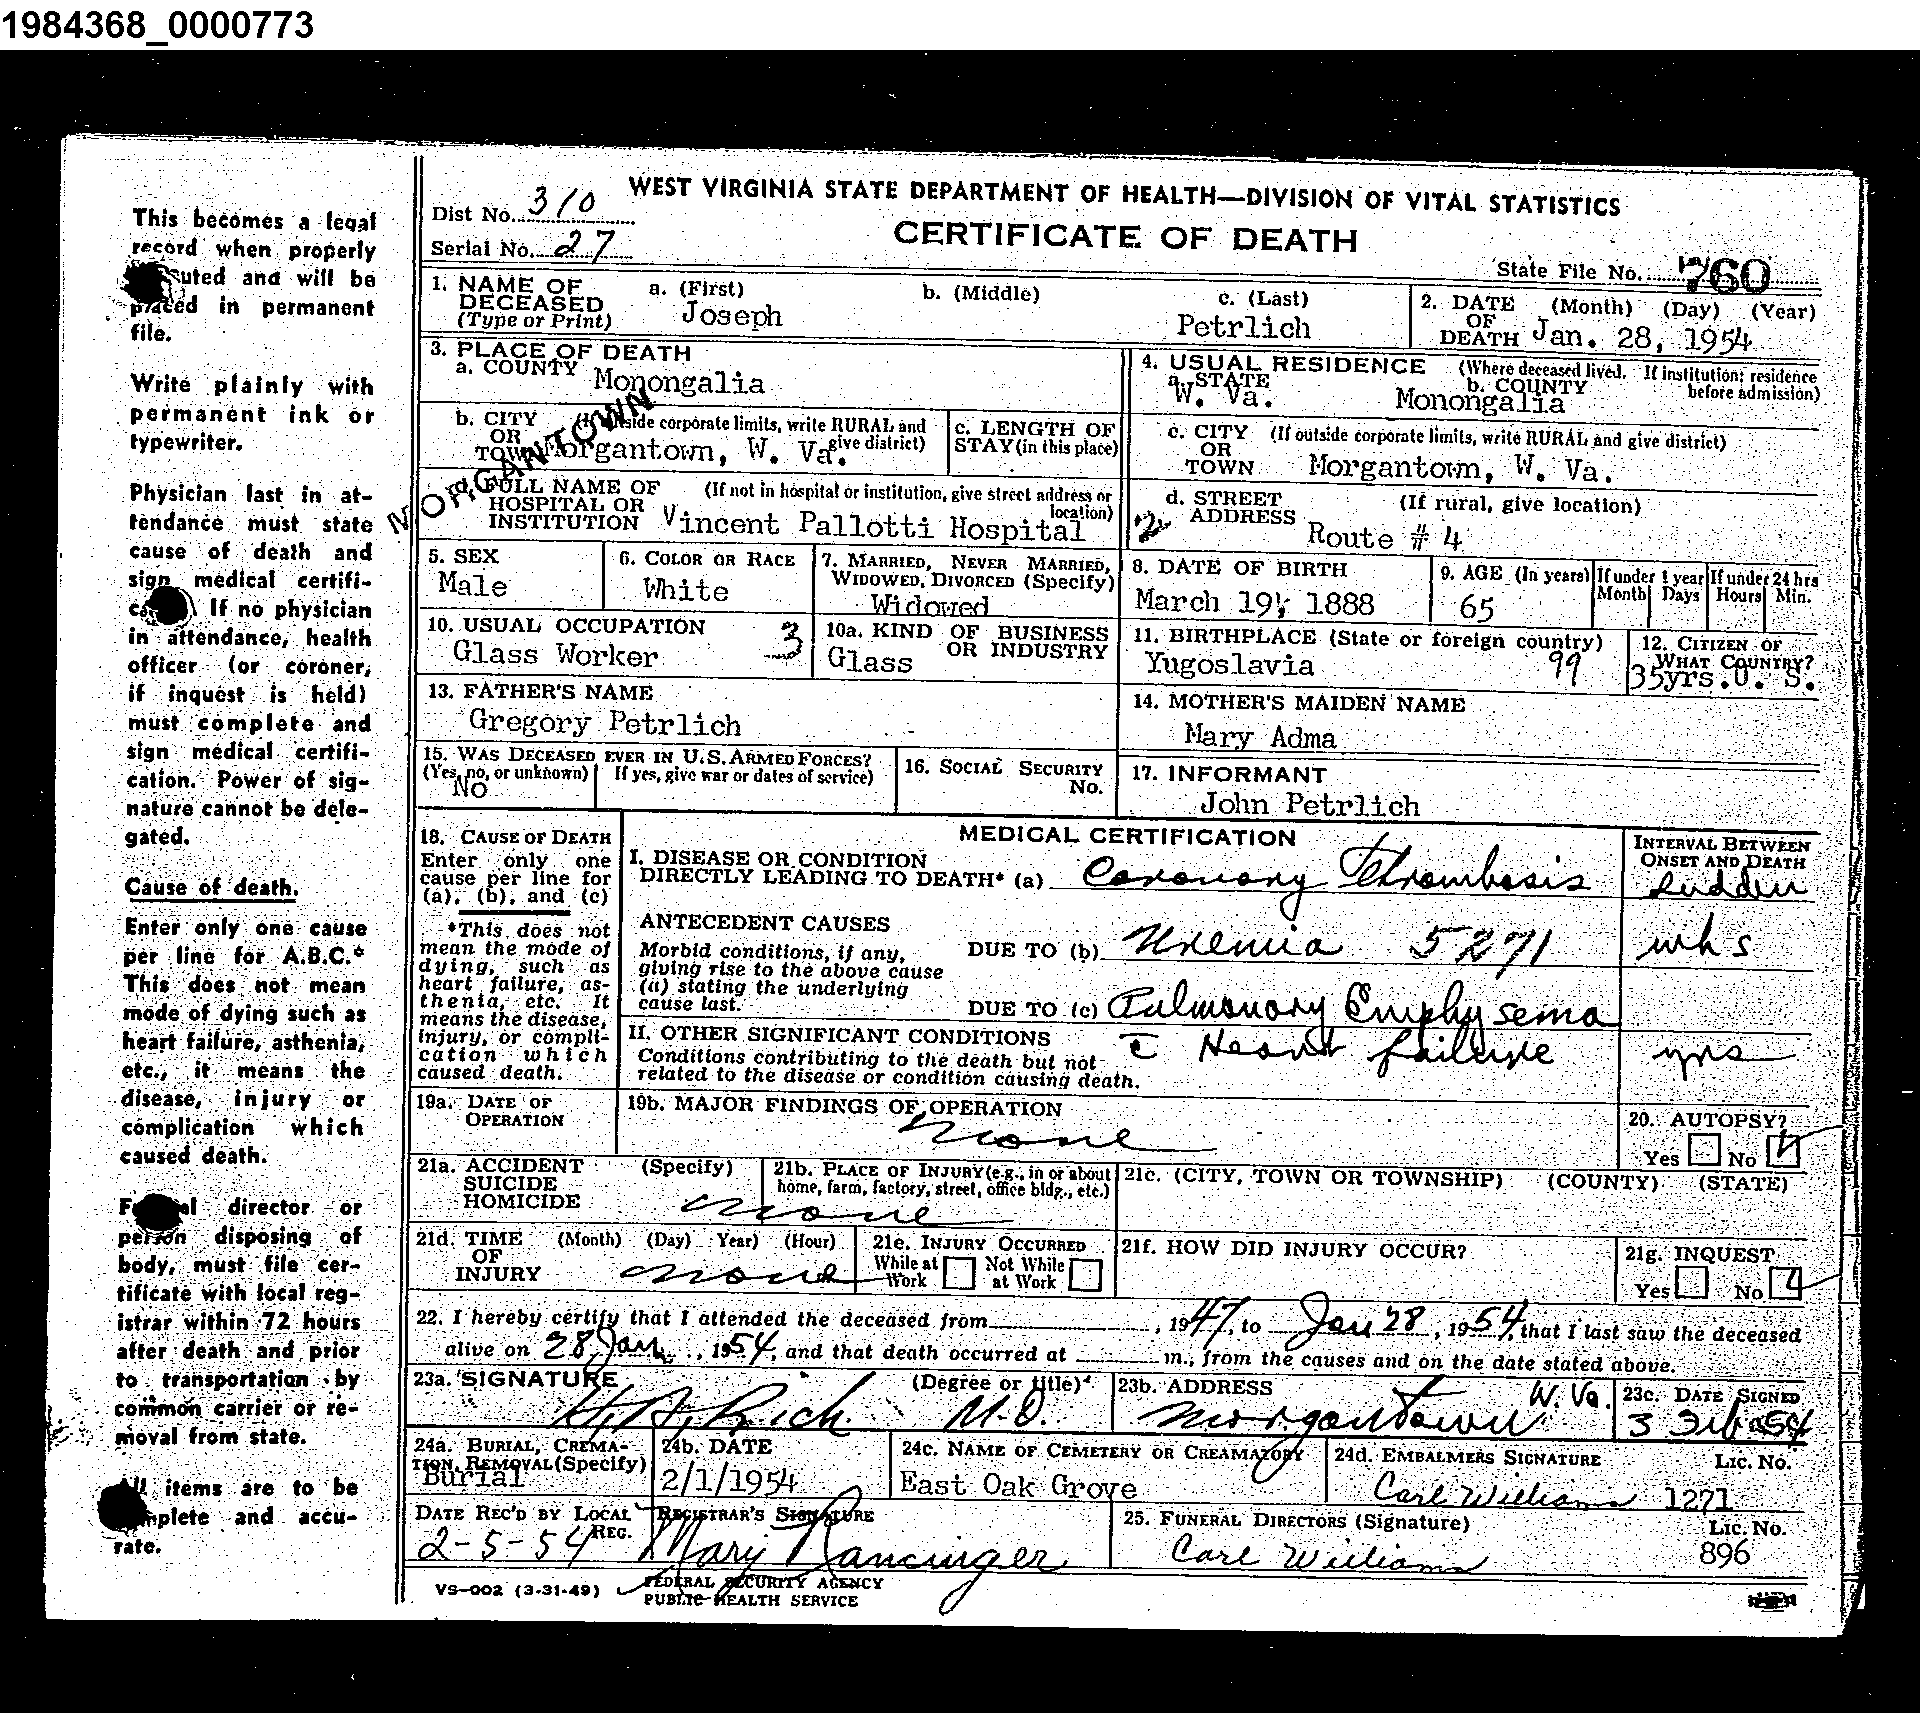 1984368_0000773
This becomes a legal
record when properly
uted and will be
placed in permanent
file.
Write plainly with
permanent ink or
typewriter.
Physician last in at-
tendance must state
cause of death and
sign medical certifi-
If no physician
in attendance, health
officer (or coroner,
if inquest is held)
must complete and
sign medical certifi-
cation. Power of sig-
nature cannot be dele-
gated.
Cause of death.
Enter only one cause
per line for A.B.C.*
This does not mean
mode of dying such as
heart failure, asthenia,
etc., it means the
disease, injury or
complication which
caused death.
director or
person disposing of
body, must file cer-
tificate with local reg-
istrar within 72 hours
after death and prior
to transportation by
common carrier or re-
moval from state.
All items are to be
complete and accu-
rate.
WEST VIRGINIA STATE DEPARTMENT OF HEALTH—DIVISION OF VITAL STATISTICS
Dist No. 310
CERTIFICATE OF DEATH
Serial No. 27
State File No. 760
1. NAME OF DECEASED (Type or Print) a. (First) b. (Middle) c. (Last)
Joseph Petrlich
2. DATE OF DEATH (Month) (Day) (Year)
Jan. 28, 1954
3. PLACE OF DEATH
a. COUNTY Monongalia
MORGANTOWN
b. CITY OR TOWN (If outside corporate limits, write RURAL and give district)
Morgantown, W. Va.
c. LENGTH OF STAY (in this place)
d. FULL NAME OF HOSPITAL OR INSTITUTION (If not in hospital or institution, give street address or location)
Vincent Pallotti Hospital
4. USUAL RESIDENCE (Where deceased lived. If institution: residence before admission)
a. STATE W. Va.
b. COUNTY Monongalia
c. CITY OR TOWN (If outside corporate limits, write RURAL and give district)
Morgantown, W. Va.
d. STREET ADDRESS (If rural, give location)
Route # 4
5. SEX
Male
6. COLOR OR RACE
White
7. MARRIED, NEVER MARRIED, WIDOWED, DIVORCED (Specify)
Widowed
8. DATE OF BIRTH
March 19, 1888
9. AGE (In years) If under 1 year If under 24 hrs
Month Days Hours Min.
65
10. USUAL OCCUPATION 3
Glass Worker
10a. KIND OF BUSINESS OR INDUSTRY
Glass
11. BIRTHPLACE (State or foreign country)
Yugoslavia 99
12. CITIZEN OF WHAT COUNTRY?
35yrs. U. S.
13. FATHER'S NAME
Gregory Petrlich
14. MOTHER'S MAIDEN NAME
Mary Adma
15. WAS DECEASED EVER IN U.S. ARMED FORCES?
(Yes, no, or unknown) If yes, give war or dates of service)
No
16. SOCIAL SECURITY No.
17. INFORMANT
John Petrlich
18. CAUSE OF DEATH
Enter only one
cause per line for
(a), (b), and (c)
*This does not
mean the mode of
dying, such as
heart failure, as-
thenia, etc. It
means the disease,
injury, or compli-
cation which
caused death.
MEDICAL CERTIFICATION
INTERVAL BETWEEN ONSET AND DEATH
I. DISEASE OR CONDITION
DIRECTLY LEADING TO DEATH* (a) Coronary Thrombosis sudden
ANTECEDENT CAUSES
Morbid conditions, if any,
giving rise to the above cause
(a) stating the underlying
cause last.
DUE TO (b) Uremia 5271 wks
DUE TO (c) Pulmonary Emphysema
II. OTHER SIGNIFICANT CONDITIONS c̄ Heart failure yrs
Conditions contributing to the death but not
related to the disease or condition causing death.
19a. DATE OF OPERATION
19b. MAJOR FINDINGS OF OPERATION
none
20. AUTOPSY?
Yes No
21a. ACCIDENT SUICIDE HOMICIDE (Specify)
none
21b. PLACE OF INJURY (e.g., in or about home, farm, factory, street, office bldg., etc.)
21c. (CITY, TOWN OR TOWNSHIP) (COUNTY) (STATE)
21d. TIME OF INJURY (Month) (Day) Year) (Hour)
none
21e. INJURY OCCURRED
While at Work Not While at Work
21f. HOW DID INJURY OCCUR?
21g. INQUEST
Yes No
22. I hereby certify that I attended the deceased from , 1947, to Jan 28, 1954, that I last saw the deceased
alive on 28 Jan, 1954, and that death occurred at m., from the causes and on the date stated above.
23a. SIGNATURE (Degree or title)
H. A. Rich M.D.
23b. ADDRESS
Morgantown W. Va.
23c. DATE SIGNED
3 Feb 54
24a. BURIAL, CREMATION, REMOVAL (Specify)
Burial
24b. DATE
2/1/1954
24c. NAME OF CEMETERY OR CREAMATORY
East Oak Grove
24d. EMBALMERS SIGNATURE Lic. No.
Carl Williams 1271
DATE REC'D BY LOCAL REG.
2-5-54
REGISTRAR'S SIGNATURE
25. FUNERAL DIRECTORS (Signature) Lic. No.
Carl Williams 896
VS-002 (3-31-49)
FEDERAL SECURITY AGENCY
PUBLIC HEALTH SERVICE